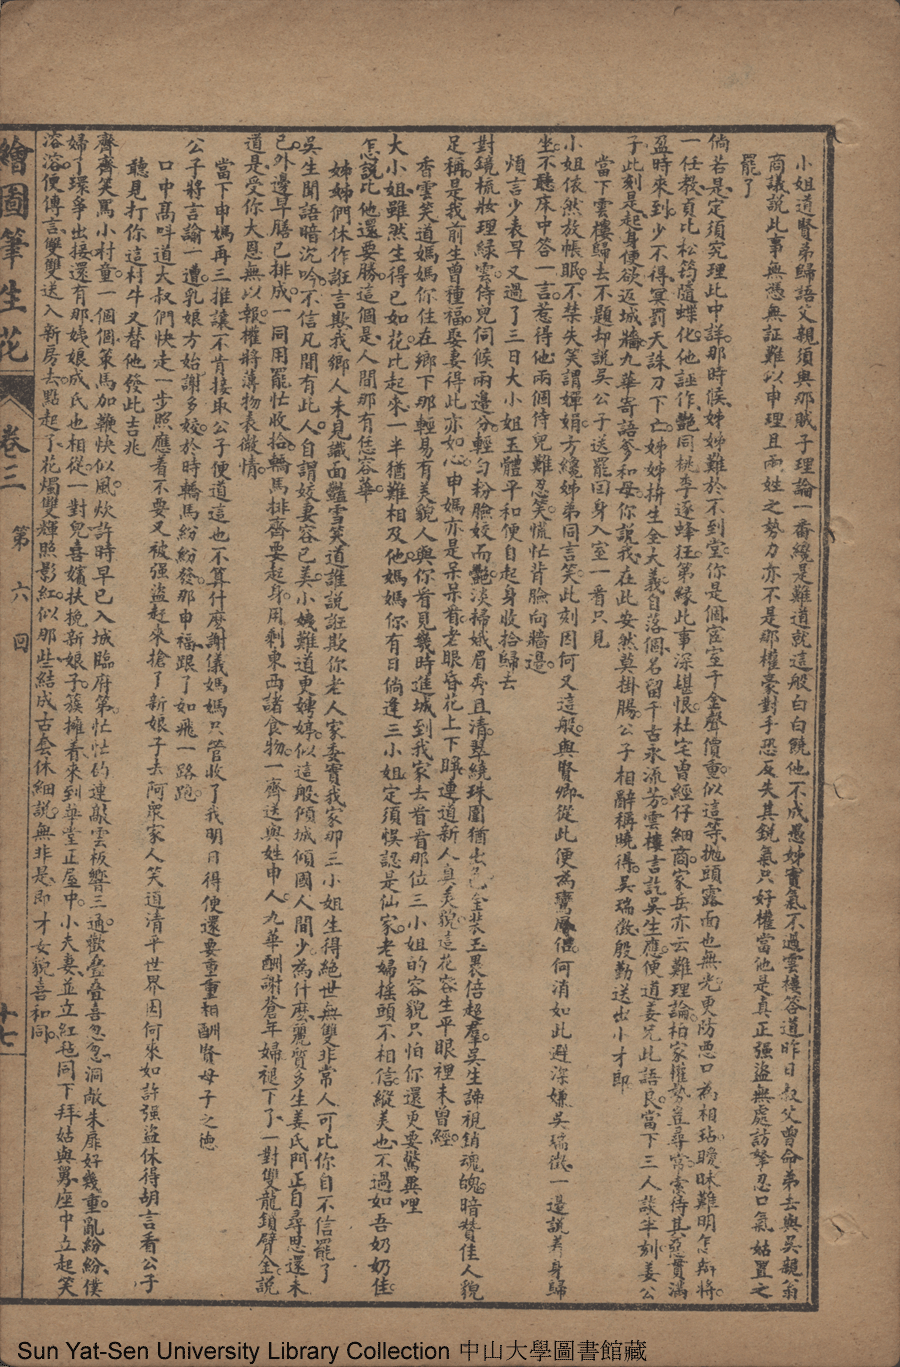 小姐道賢弟歸語父親須與那賊子理論一番纔是難道就這般白白饒他不成愚姊實氣不過雲樓答道昨日叔父曾命弟去與吳親翁
商議說此事無憑無証難以申理且兩姓之勢力亦不是那權豪對手恐反失其銳氣只好權當他是真正强盜無處訪拏忍口氣姑置之
罷了
倘若是定須究理此中詳那時候姊姊難於不到堂你是個宦室千金聲價重似這等抛頭露面也無光更防悪口為相玷曖昧難明怎辯將
一任教貞比松筠隨蝶化他誣作艶同桃李逐蜂狂第緣此事深堪恨杜宅曾經仔細商家岳亦云難理論柏家權勢豈尋常索待其惡貫滿
盈時來到少不得冥罰天誅刀下亡姊姊拚生全大義自落個名留千古永流芳雲樓言訖吳生應便道姜兄此語良當下三人談半刻姜公
子此刻是起身便欲返城牆九華寄語爹和母你說我在此安然莫掛腸公子相辭稱曉得吳瑞徵殷勤送出小才郎
當下雲樓歸去不題却說吳公子送罷回身入室一看只見
小姐依然放帳眠不禁失笑謂嬋娟方纔姊弟同言笑此刻因何又這般與賢卿從此便為鸞鳳侶何消如此避深嫌吳瑞徵一邊說着身歸
坐不聽床中答一言惹得他兩個侍兒難忍笑慌忙背臉向牆邊
煩言少表早又過了三日大小姐玉體平和便自起身收拾歸去
對鏡梳妝理綠雲侍兒伺候兩邊分輕匀粉臉姣而艷淡掃娥眉秀且清翠繞珠圍猶出色金裝玉裹倍超羣吳生諦視銷魂魄暗賛佳人貌
足稱是我前生曾種福娶妻得此亦如心申媽亦是呆呆看老眼昏花上下瞧連道新人真美貌這花容生平眼裡未曾經
香雲笑道媽媽你住在鄉下那輕易有美貌人與你看見幾時進城到我家去看看那位三小姐的容貌只怕你還更要驚異哩
大小姐雖然生得已如花比起來一半猶難相及他媽媽你有日倘逢三小姐定須悮認是仙家老婦搖頭不相信縱美也不過如吾奶奶佳
怎說比他還要勝這個是人間那有恁容華
姊姊們休作誑言欺我鄉人未見識面艷雪笑道誰說誑欺你老人家委實我家那三小姐生得絕世無雙非常人可比你自不信罷了
吳生聞語暗沉吟不信凡間有此人自謂姣妻容已美小姨難道更娉婷似這般傾城傾國人間少為什麽麗質多生姜氏門正自尋思還未
已外邊早膳已排成一同用罷忙收拾轎馬排齊要起身用剩東西諸食物一齊送與姓申人九華酬謝蒼年婦褪下了一對雙龍鎖臂金說
道是受你大恩無以報權將薄物表微情
當下申媽再三推讓不肯接取公子便道這也不算什麼謝儀媽媽只管收了我明日得便還要重重相酬賢母子之德
公子將言諭一遭乳娘方始謝多姣於時轎馬紛紛發那申福跟了如飛一路跑
口中高叫道大叔們快走一步照應着不要又被强盜起來搶了新娘子去阿眾家人笑道清平世界因何來如許强盜休得胡言看公子
聽見打你這村牛又替他發此吉兆
齊齊笑罵小村童一個個策馬加鞭快似風炊許時早已入城臨府第忙忙的連敲雲板響三通歡疊疊喜忽忽洞敞朱扉好幾重亂紛紛僕
婦丫環爭出接還有那姨娘成氏也相從一對兒喜嬪扶挽新娘子簇擁看來到華堂正屋中小夫妻並立紅毡同下拜姑與舅座中立起笑
溶溶便傳言雙雙送入新房去點起了花燭雙輝照影紅似那些結成古套休細説無非是郎才女貌喜和同
繪圖筆生花 卷三 第六回 十七
Sun Yat-Sen University Library Collection 中山大學圖書館藏